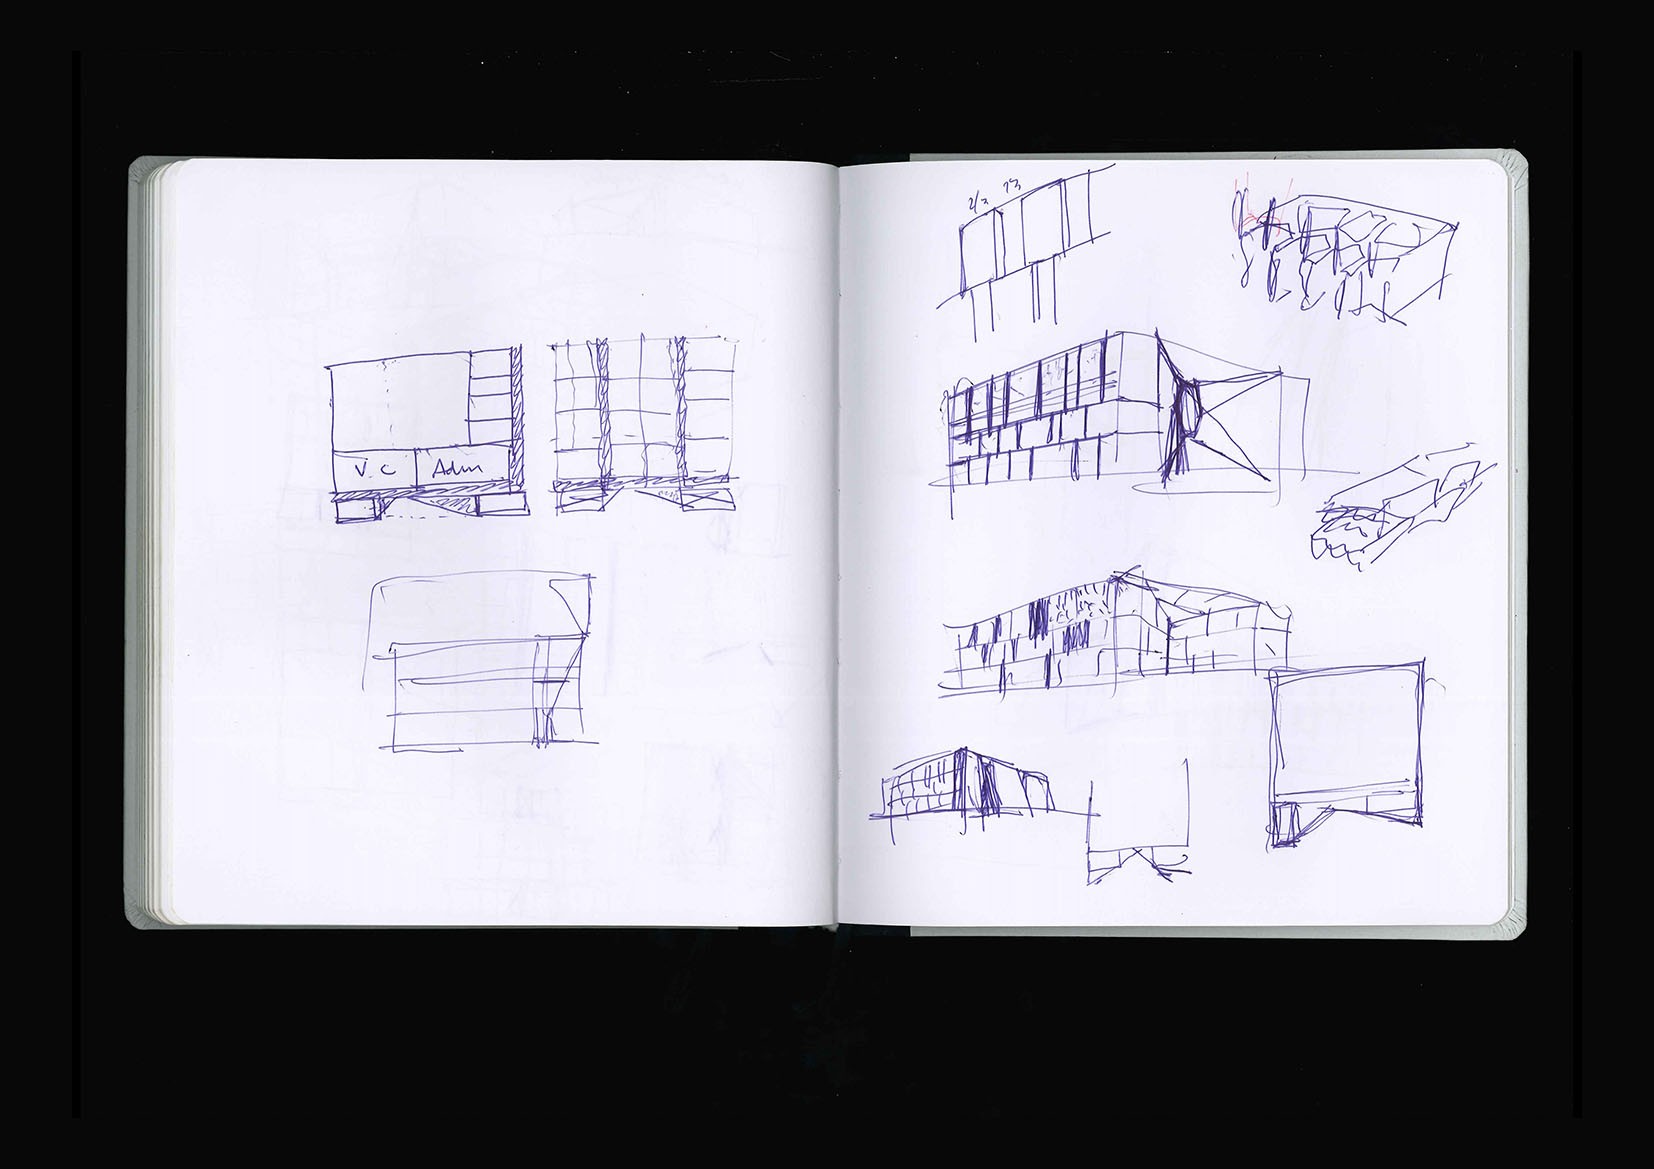 V.C
Adm
2/3
1/3